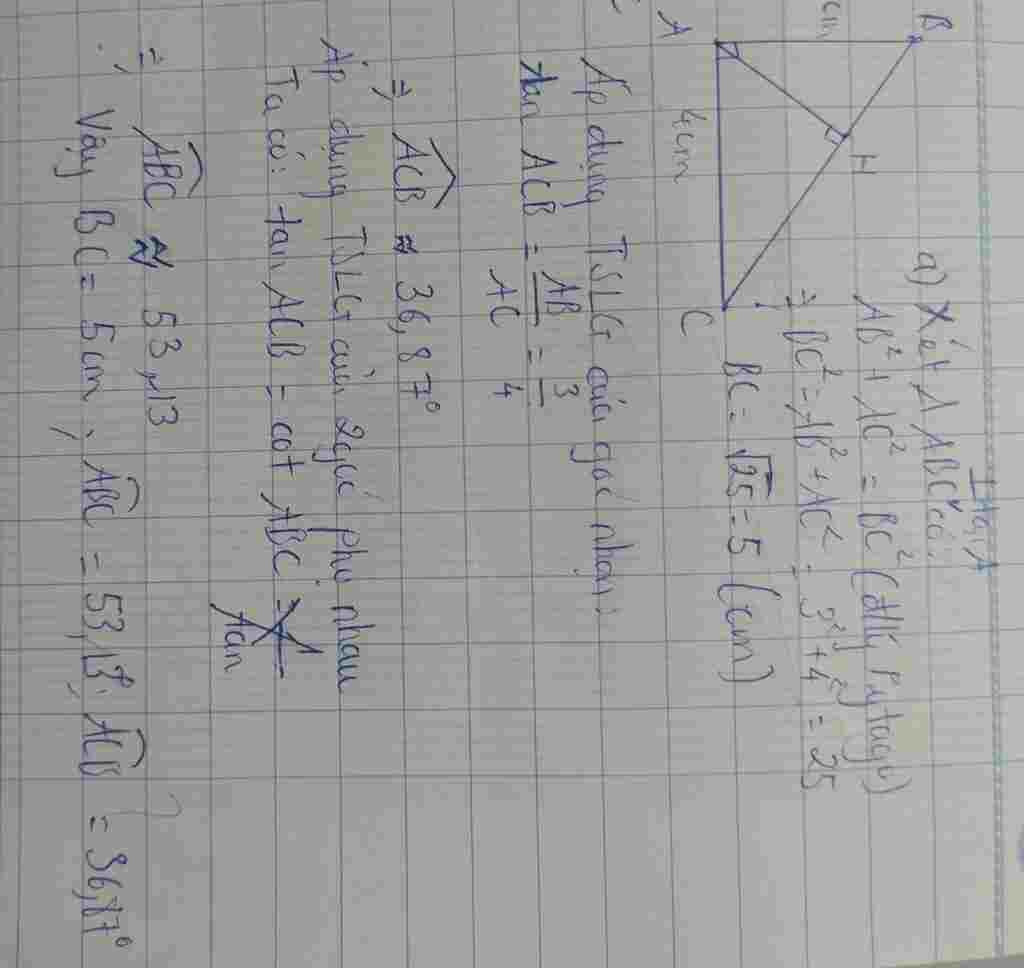 B
cm
H
A
4cm
C
a) Xét Δ ABC ⊥ tại A có:
AB² + AC² = BC² (đ/lý Pytago)
⇒ BC² = AB² + AC² = 3² + 4² = 25
BC = √25 = 5 (cm)
Áp dụng TSLG của góc nhọn:
tan ACB = AB/AC = 3/4
⇒ ACB ≈ 36,87°
Áp dụng TSLG của 2 góc phụ nhau
Ta có: tan ACB = cot ABC =
⇒ ABC ≈ 53,13
Vậy BC = 5cm, ABC = 53,13°, ACB = 36,87°